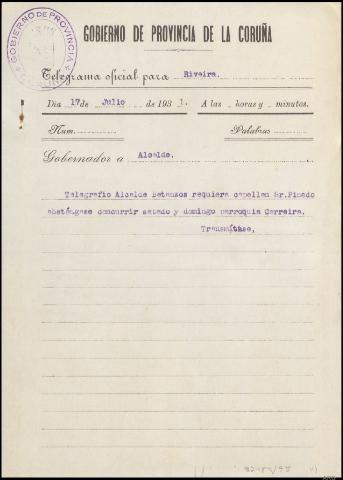 GOBIERNO DE PROVINCIA
GOBIERNO DE PROVINCIA DE LA CORUÑA
Telegrama oficial para Riveira.
Día 17 de Julio de 1931. A las horas y minutos.
Núm. Palabras
Gobernador a Alcalde.
Telegrafio Alcalde Betanzos requiera capellan Sr. Pinado
absténgase concurrir sabado y domingo parroquia Carreira.
Transmítase,